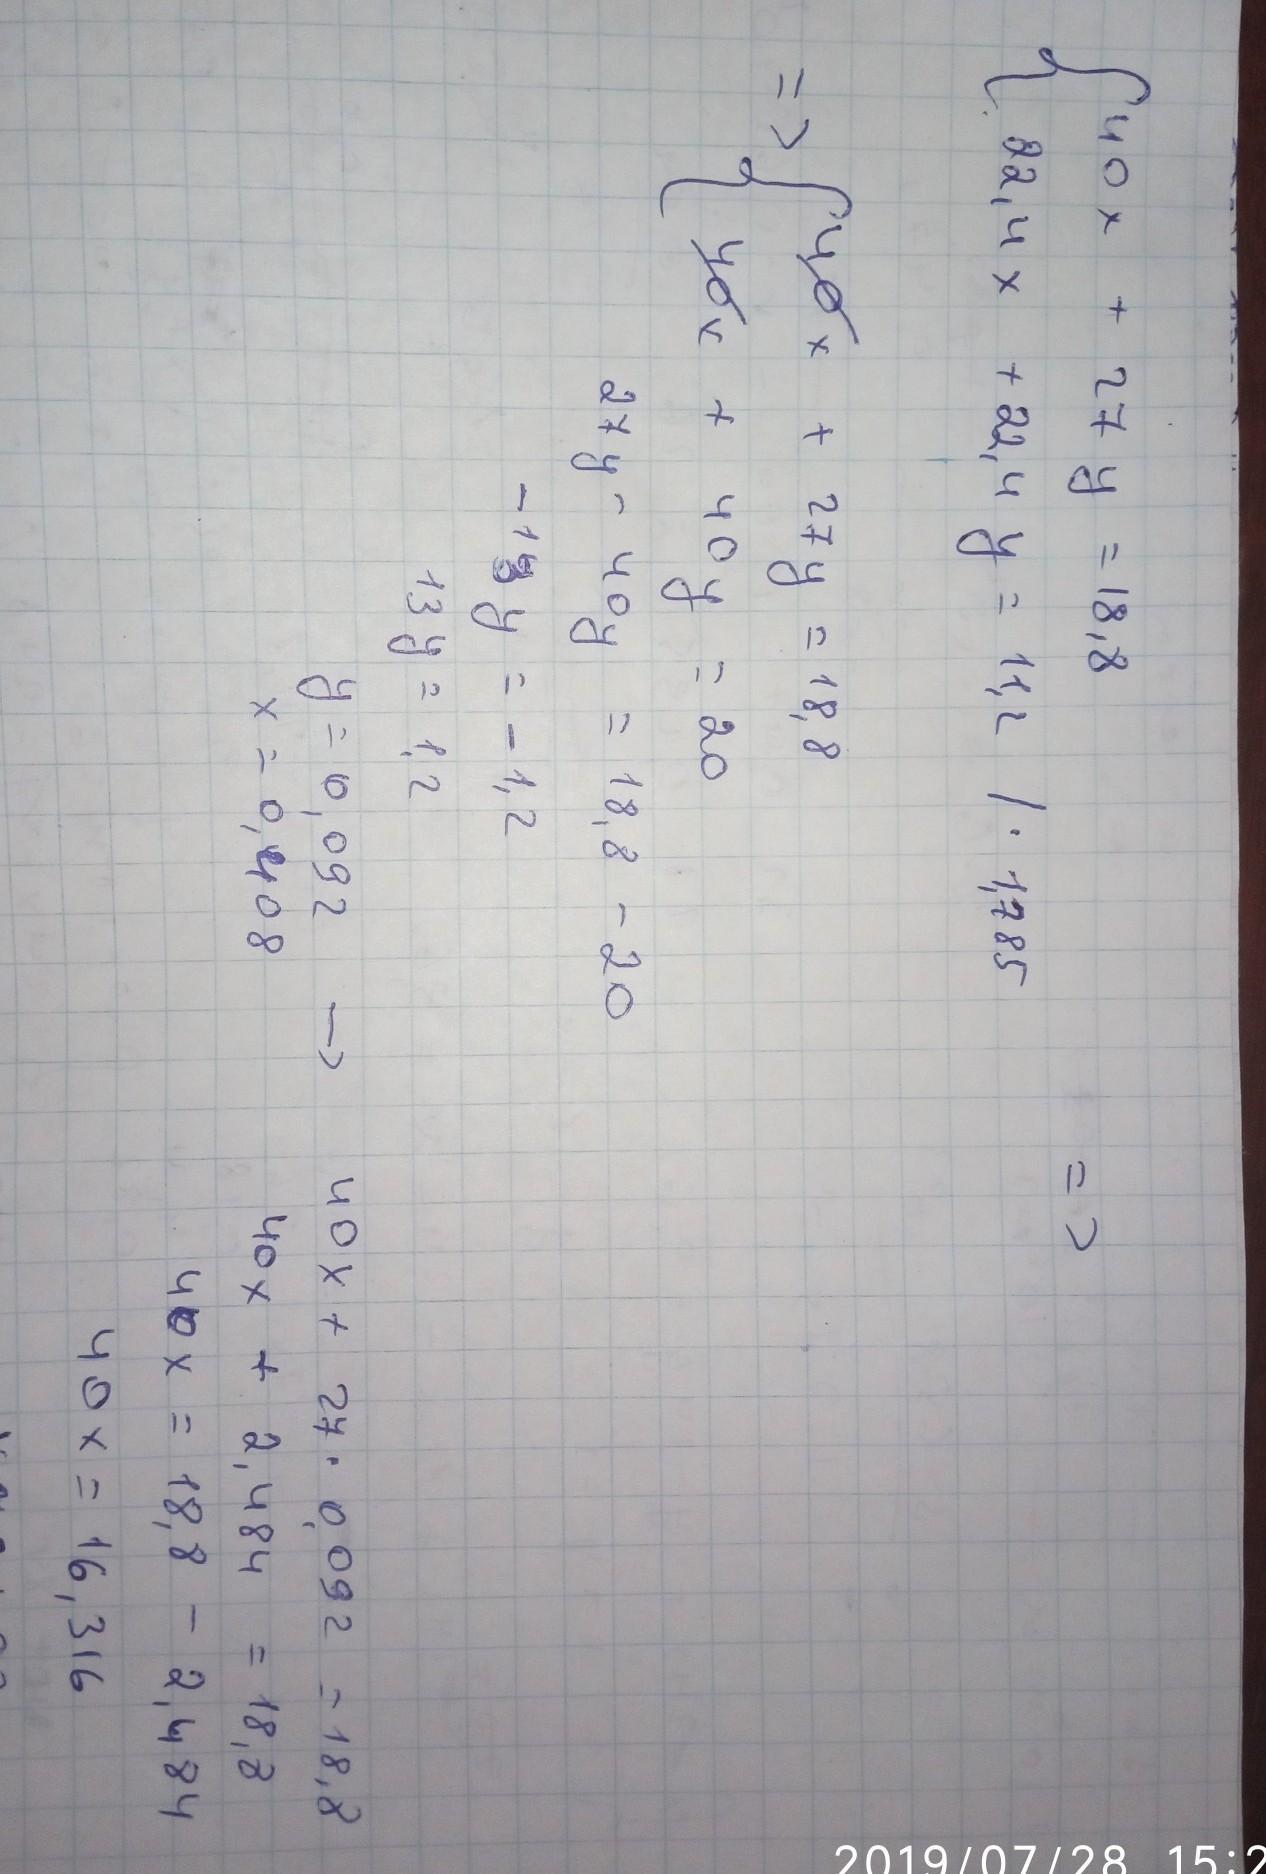 {40x + 27y = 18,8
{22,4x + 22,4y = 11,2 /· 1,785 =>
=> {40x + 27y = 18,8
{40x + 40y = 20
27y - 40y = 18,8 - 20
-13y = -1,2
13y = 1,2
y = 0,092 → 40x + 27·0,092 = 18,8
x = 0,408 40x + 2,484 = 18,8
40x = 18,8 - 2,484
40x = 16,316
2019/07/28 15:2